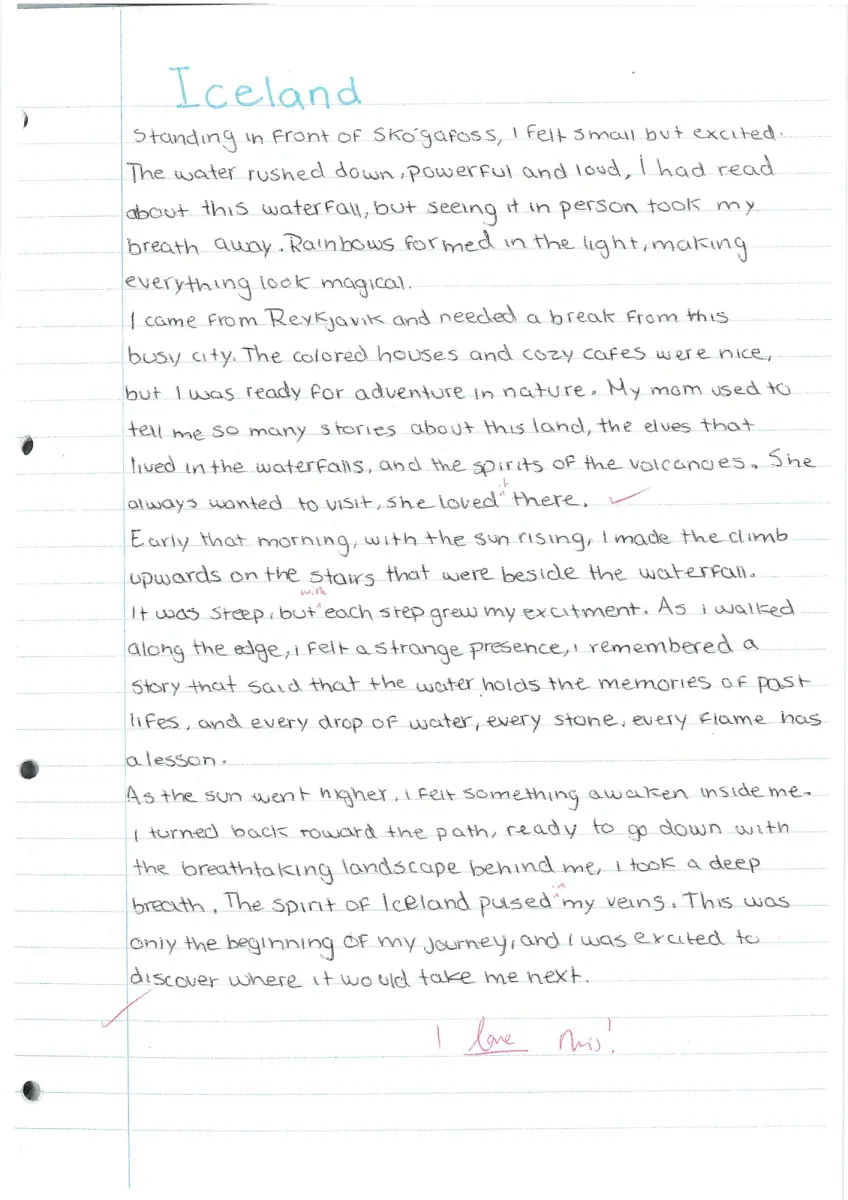 Iceland
Standing in front of Skógafoss, I felt small but excited.
The water rushed down, powerful and loud, I had read
about this waterfall, but seeing it in person took my
breath away. Rainbows formed in the light, making
everything look magical.
I came from Reykjavik and needed a break from this
busy city. The colored houses and cozy cafes were nice,
but I was ready for adventure in nature. My mom used to
tell me so many stories about this land, the elves that
lived in the waterfalls, and the spirits of the volcanoes. She
always wanted to visit, she loved it there.
Early that morning, with the sun rising, I made the climb
upwards on the stairs that were beside the waterfall.
It was steep, but with each step grew my excitment. As i walked
along the edge, i felt a strange presence, i remembered a
story that said that the water holds the memories of past
lifes, and every drop of water, every stone, every flame has
a lesson.
As the sun went higher, i felt something awaken inside me.
I turned back toward the path, ready to go down with
the breathtaking landscape behind me, i took a deep
breath. The spirit of Iceland pused in my veins. This was
only the beginning of my journey, and i was excited to
discover where it would take me next.
I love this!